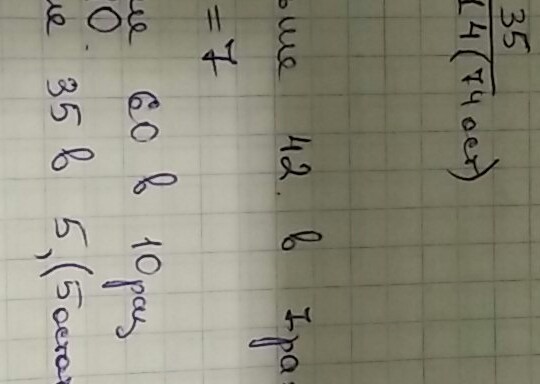 35
4(74 ост)
ьше 42. в 7 ра
= 7
ше 60 в 10 раз
0.
е 35 в 5,(5остат